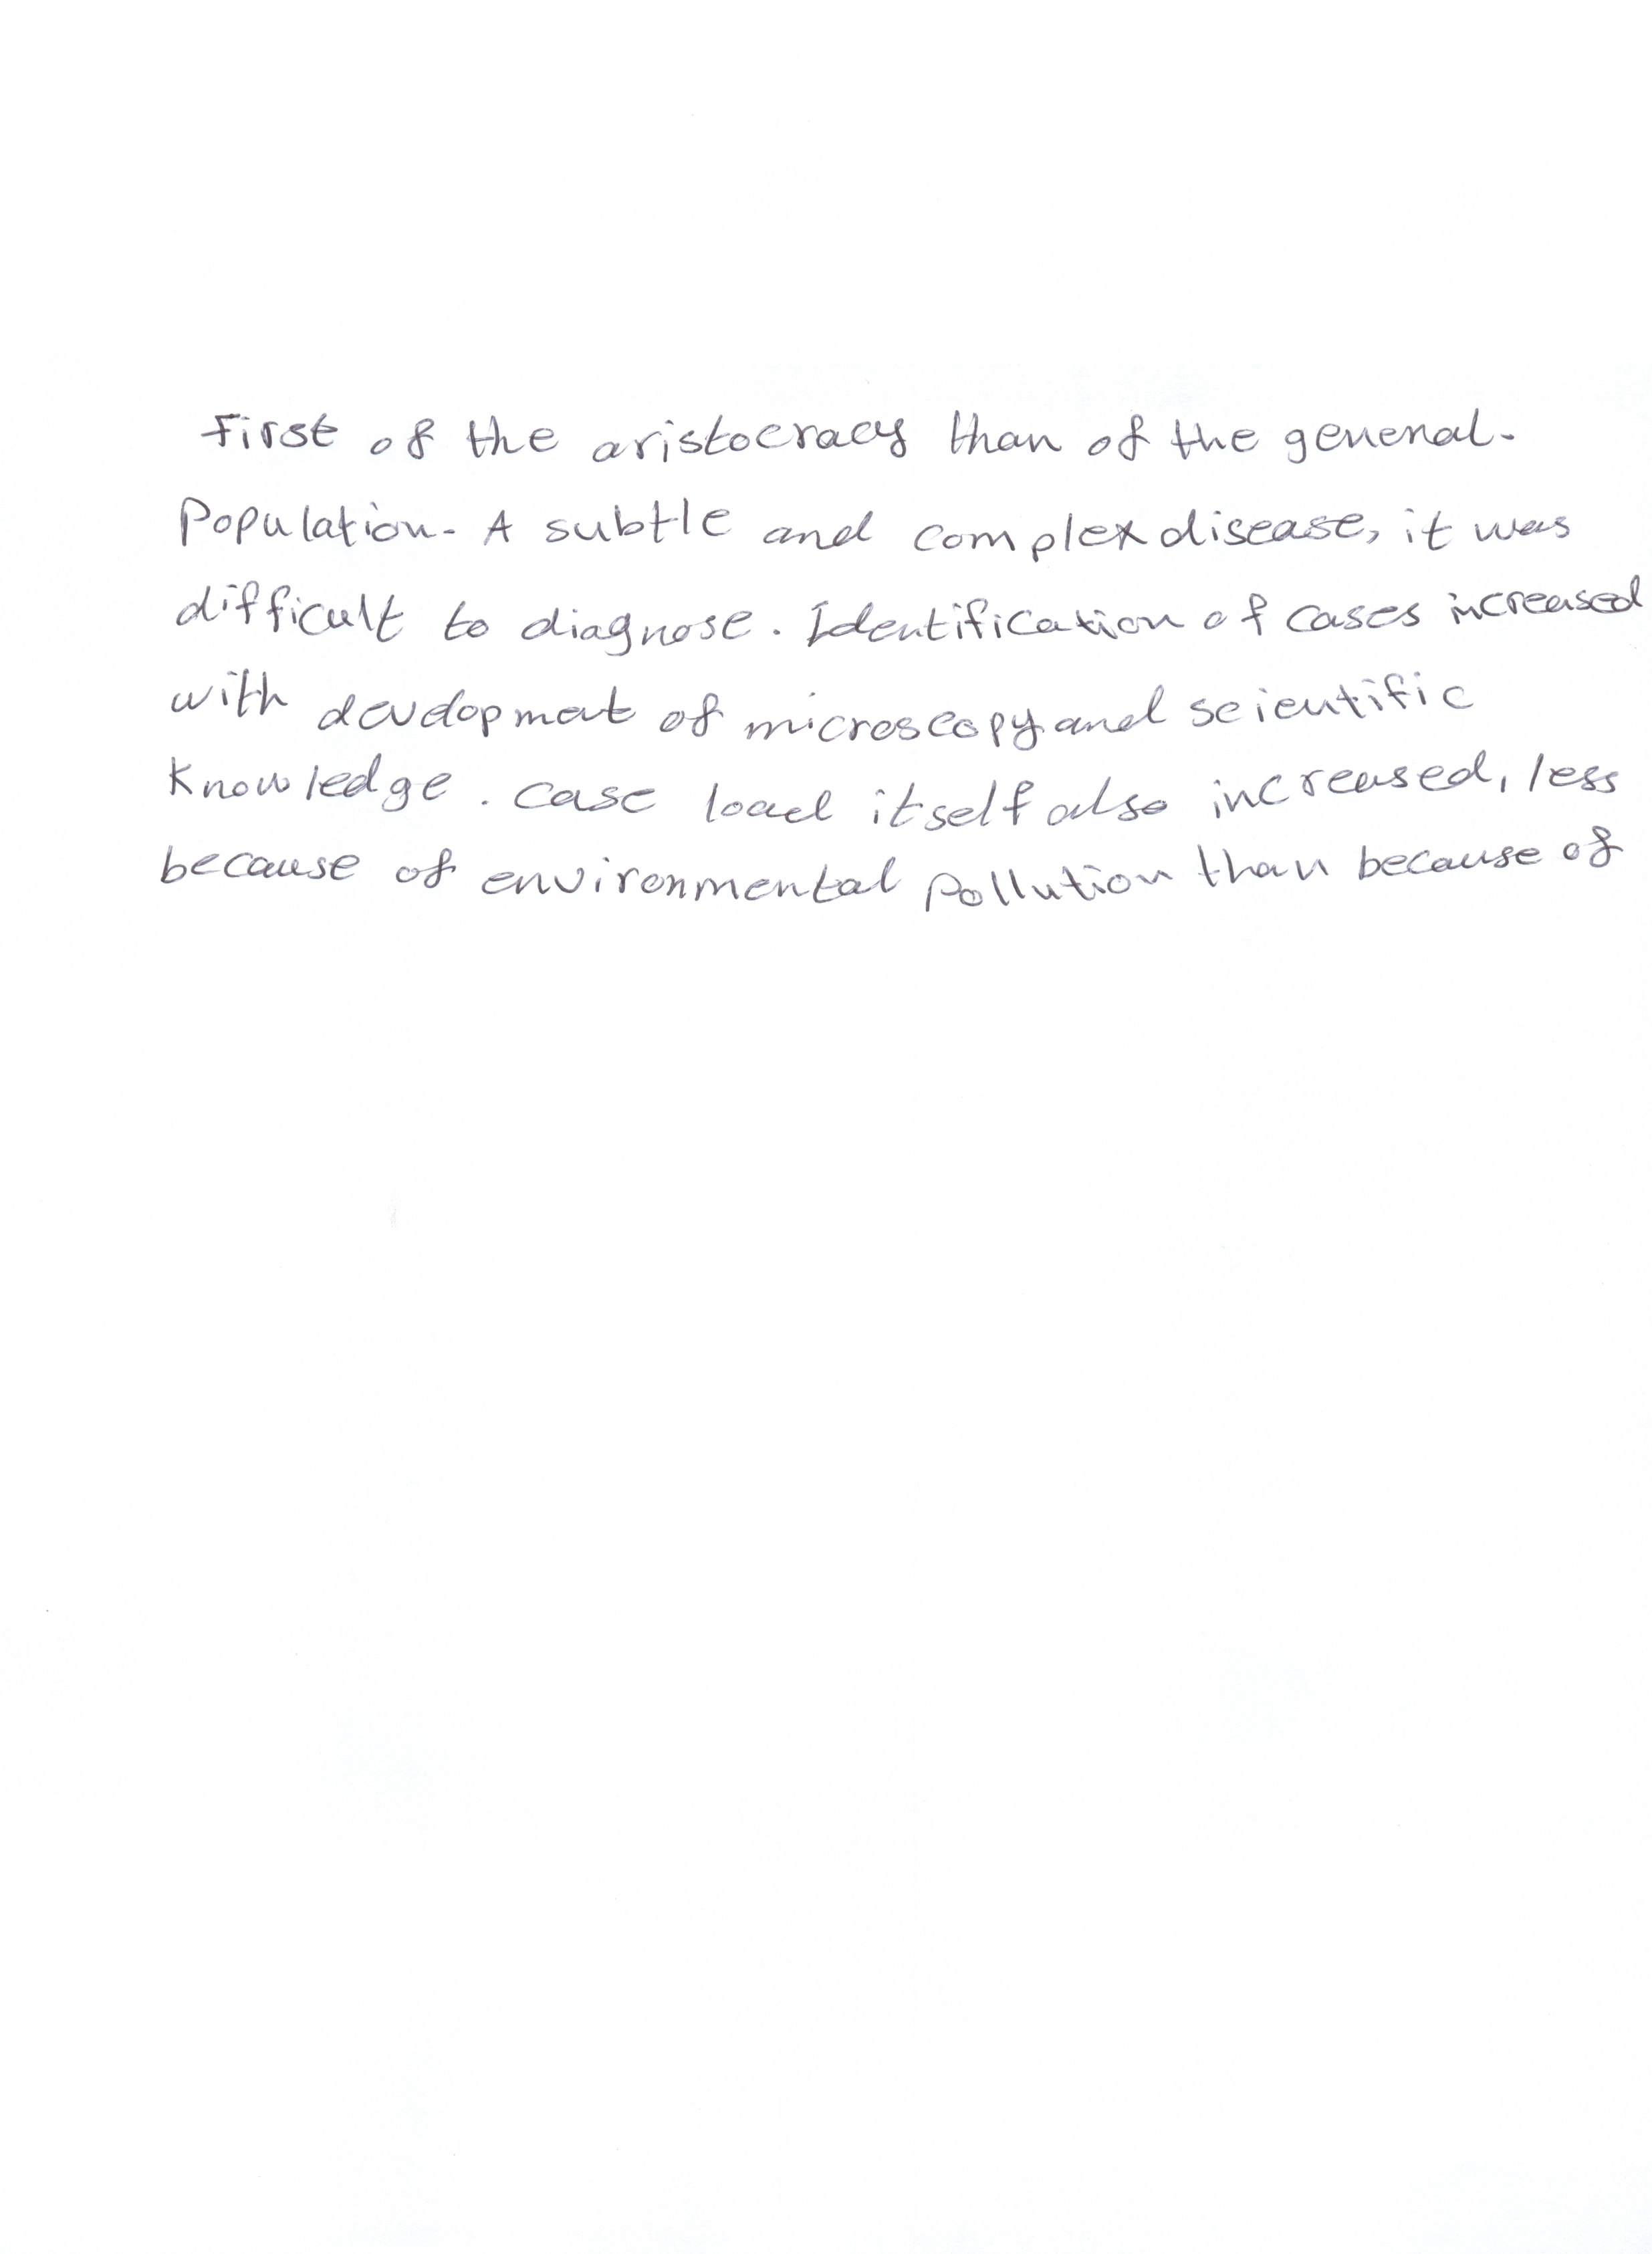 First of the aristocracy than of the general.
Population. A subtle and complex disease, it was
difficult to diagnose. Identification of cases increased
with development of microscopy and scientific
Knowledge. Case load itself also increased, less
because of environmental pollution than because of